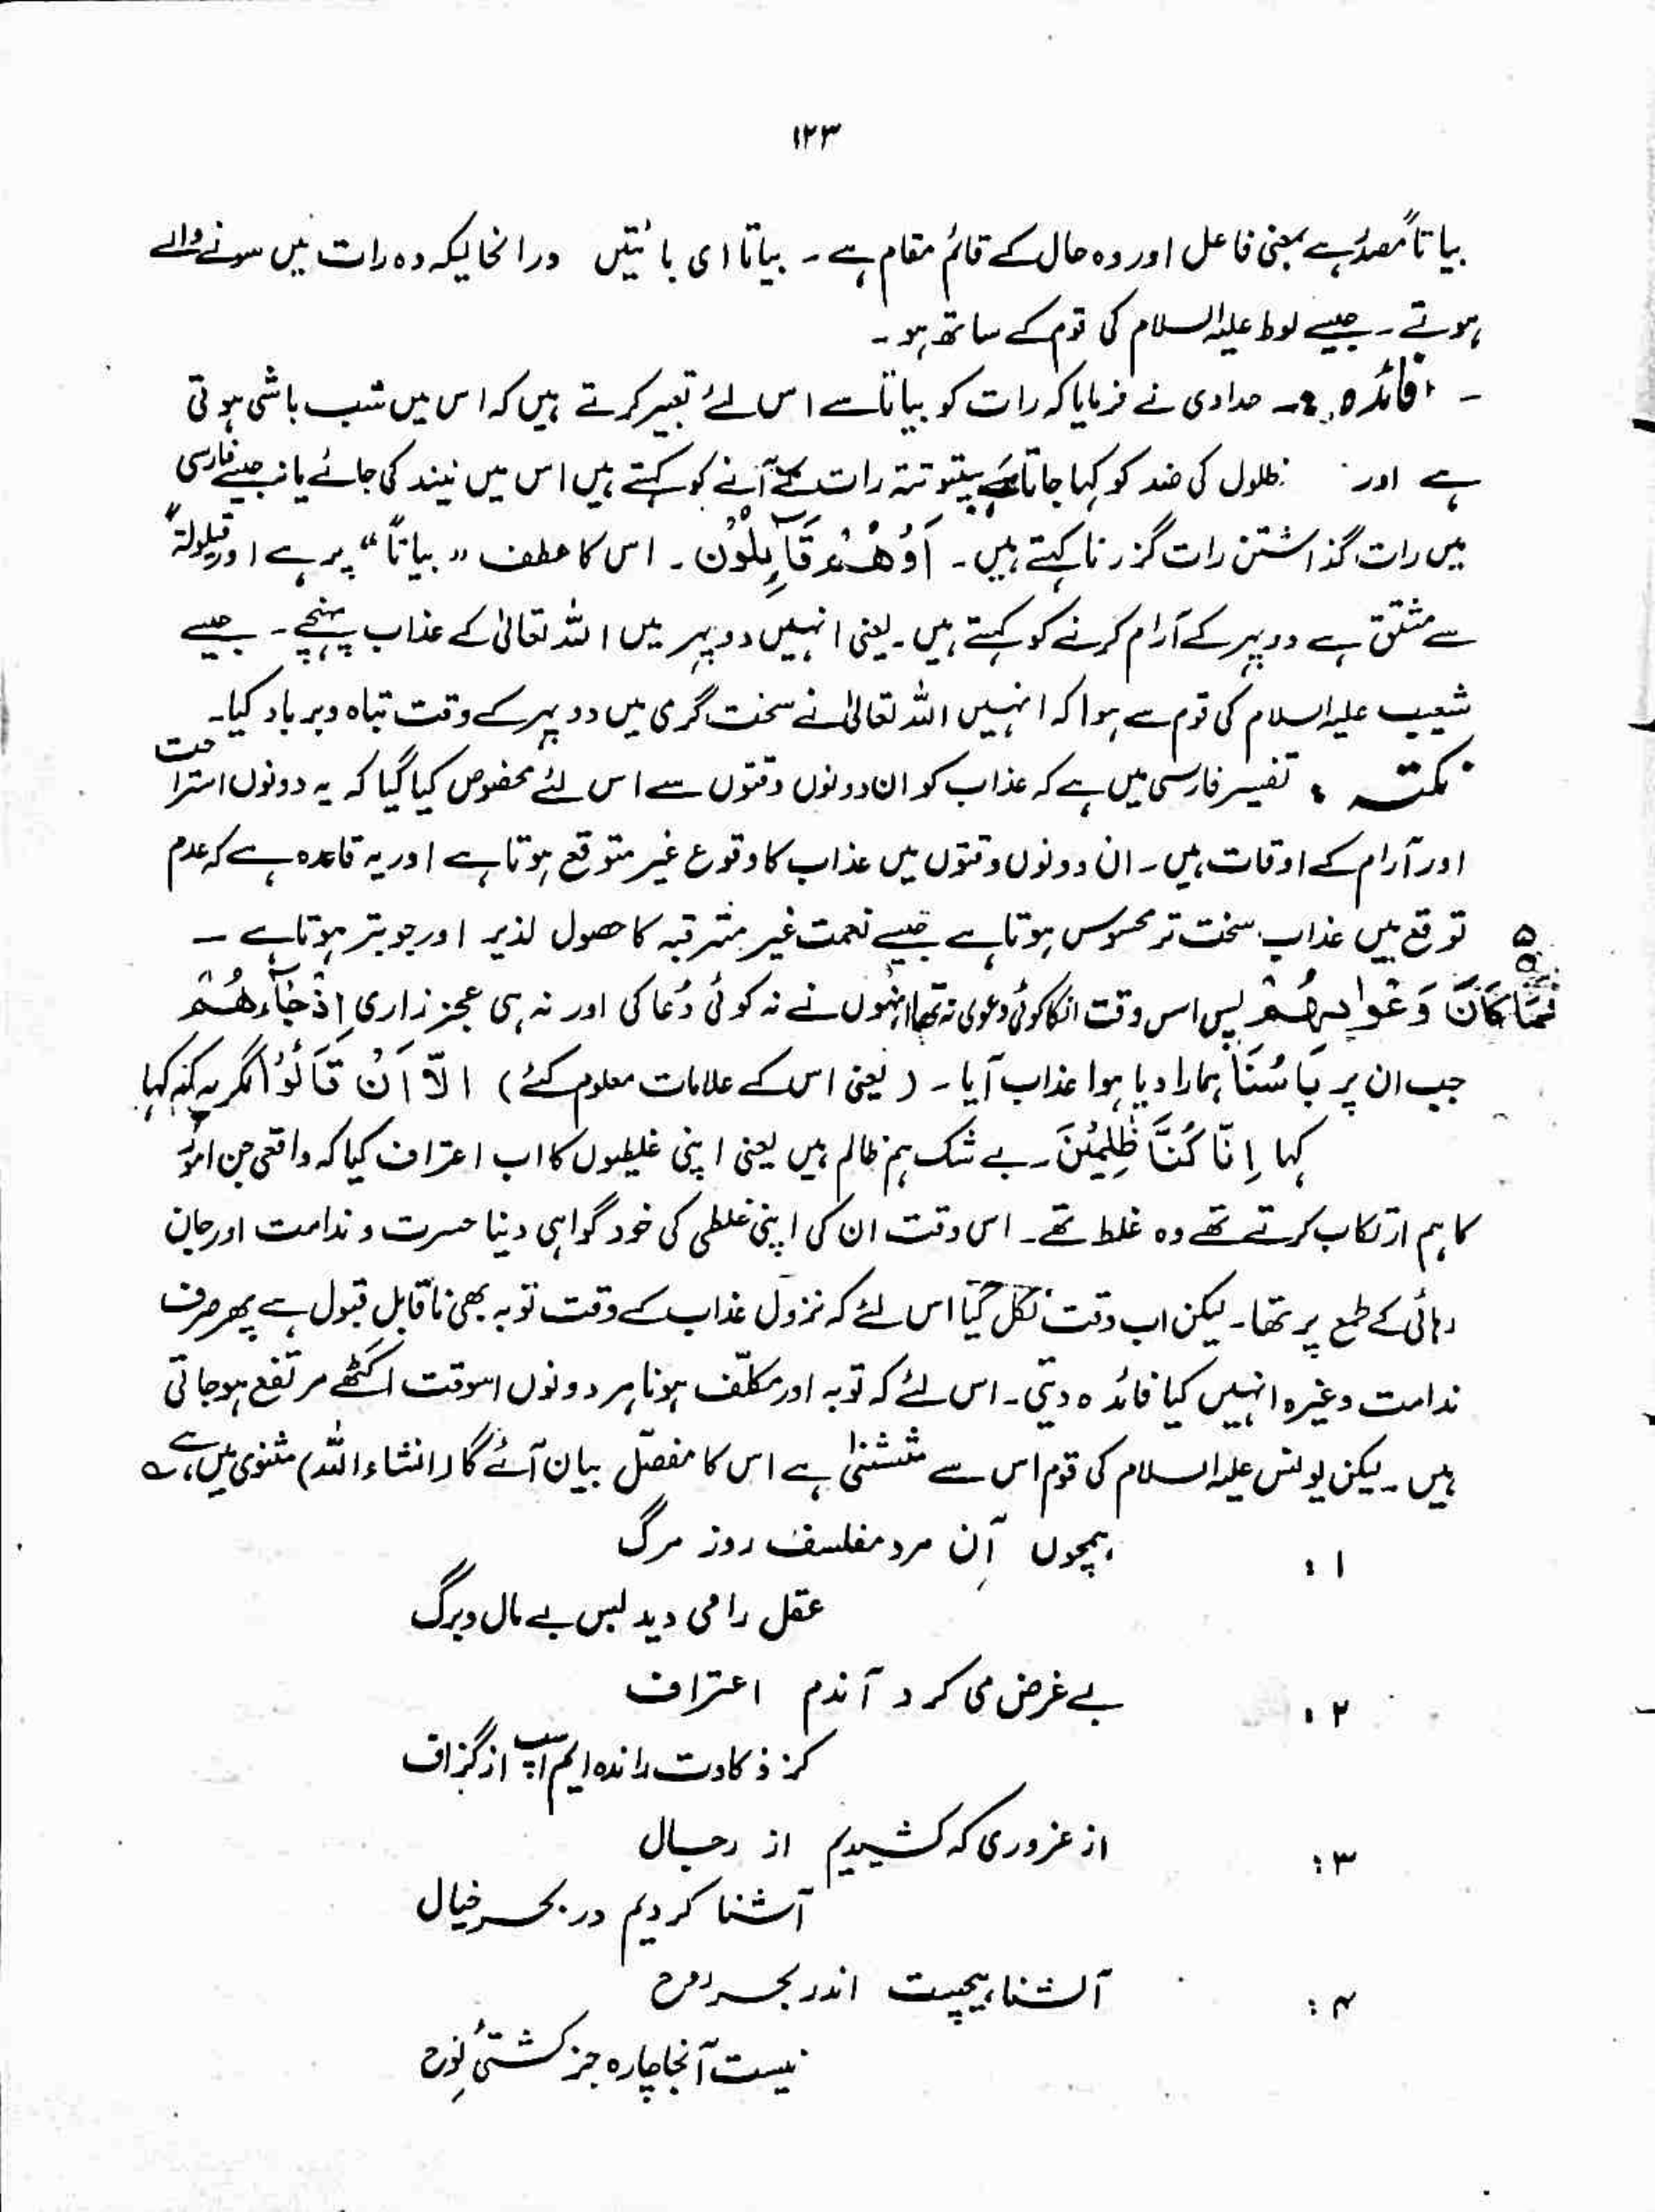 ۱۲۳
بیاتاً مصدر ہے بمعنی فاعل اور وہ حال کے قائم مقام ہے ۔ بیاتا ای بائتیں درانحالیکہ وہ رات میں سونے والے
ہوتے ۔ جیسے لوط علیہ السلام کی قوم کے ساتھ ہو ۔
۔ فائدہ :۔ حدادی نے فرمایا کہ رات کو بیاتا سے اس لئے تعبیر کرتے ہیں کہ اس میں شب باشی ہوتی
ہے اور ظلول کی ضد کو کہا جاتا ہے بیتوتتہ رات کے آنے کو کہتے ہیں اس میں نیند کی جائے یا نہ جیسے فارسی
میں رات گذاشتن رات گزرنا کہتے ہیں ۔ اَوْ هُمْ قَآىِٕلُوْن ۔ اس کا عطف " بیاتاً " پر ہے اور قیلولۃ
سے مشتق ہے دوپہر کے آرام کرنے کو کہتے ہیں ۔ یعنی انہیں دوپہر میں اللہ تعالیٰ کے عذاب پہنچے ۔ جیسے
شعیب علیہ السلام کی قوم سے ہوا کہ انہیں اللہ تعالیٰ نے سخت گرمی میں دوپہر کے وقت تباہ و برباد کیا ۔
نکتہ : تفسیر فارسی میں ہے کہ عذاب کو ان دونوں وقتوں سے اس لئے مخصوص کیا گیا کہ یہ دونوں استراحت
اور آرام کے اوقات ہیں ۔ ان دونوں وقتوں میں عذاب کا وقوع غیر متوقع ہوتا ہے اور یہ قاعدہ ہے کہ عدم
توقع میں عذاب سخت تر محسوس ہوتا ہے جیسے نعمت غیر مترقبہ کا حصول لذیر اور جوبتر ہوتا ہے ۔
فَمَا كَانَ دَعْوٰىهُمْ پس اس وقت انکا کوئی دعوی نہ تھا انہوں نے نہ کوئی دُعا کی اور نہ ہی عجز زاری اِذْ جَآءَهُمْ
جب ان پر بَاْسُنَا ہمارا دیا ہوا عذاب آیا ۔ ( یعنی اس کے علامات معلوم کئے ) اِلَّا اَنْ قَالُوْا مگر یہ کہ کہا
کہا اِنَّا كُنَّا ظٰلِمِیْنَ ۔ بے شک ہم ظالم ہیں یعنی اپنی غلطیوں کا اب اعتراف کیا کہ واقعی جن امور
کا ہم ارتکاب کرتے تھے وہ غلط تھے ۔ اس وقت ان کی اپنی غلطی کی خود گواہی دینا حسرت و ندامت اور جان
رہائی کے طمع پر تھا ۔ لیکن اب وقت نکل گیا اس لئے کہ نزول عذاب کے وقت توبہ بھی ناقابل قبول ہے پھر صرف
ندامت وغیرہ انہیں کیا فائدہ دیتی ۔ اس لئے کہ توبہ اور مکلّف ہونا ہر دونوں اسوقت اکٹھے مرتفع ہوجاتی
ہیں ۔ لیکن یونس علیہ السلام کی قوم اس سے مستثنیٰ ہے اس کا مفصّل بیان آئے گا (انشاء اللہ) مثنوی میں ہے ؎
۱ : ہمچوں آں مرد مفلسف روز مرگ
عقل را می دید لبس بے مال و برگ
۲ : بے غرض می کرد آندم اعتراف
کز ذکاوت راندہ ایم اسپ از گزاف
۳ : از غروری کہ کشیدیم از رجال
آشنا کردیم در بحر خیال
۴ : آشنا ہیچست اندر بحر روح
نیست آنجا چارہ جز کشتیٔ نوح